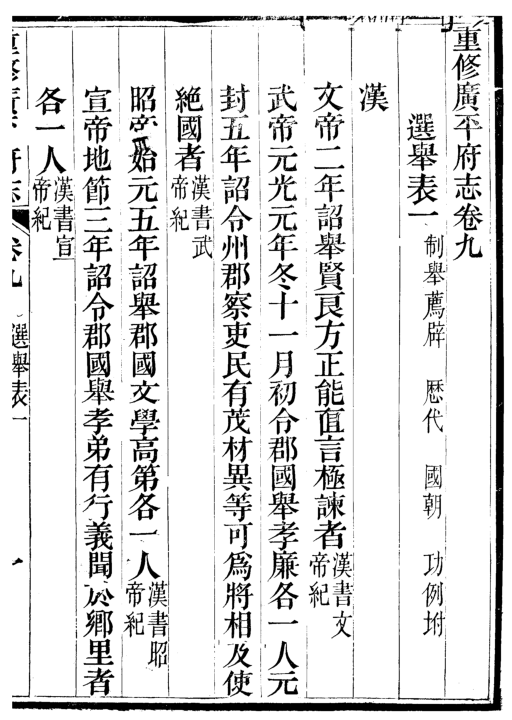 重修廣平府志卷九
選舉表一 制舉薦辟 歷代 國朝 功例坿
漢
文帝二年詔舉賢良方正能直言極諫者漢書文帝紀
武帝元光元年冬十一月初令郡國舉孝廉各一人元
封五年詔令州郡察吏民有茂材異等可爲將相及使
絕國者漢書武帝紀
昭帝始元五年詔舉郡國文學高第各一人漢書昭帝紀
宣帝地節三年詔令郡國舉孝弟有行義聞於鄉里者
各一人漢書宣帝紀
重修廣平府志 卷九 選舉表一 一